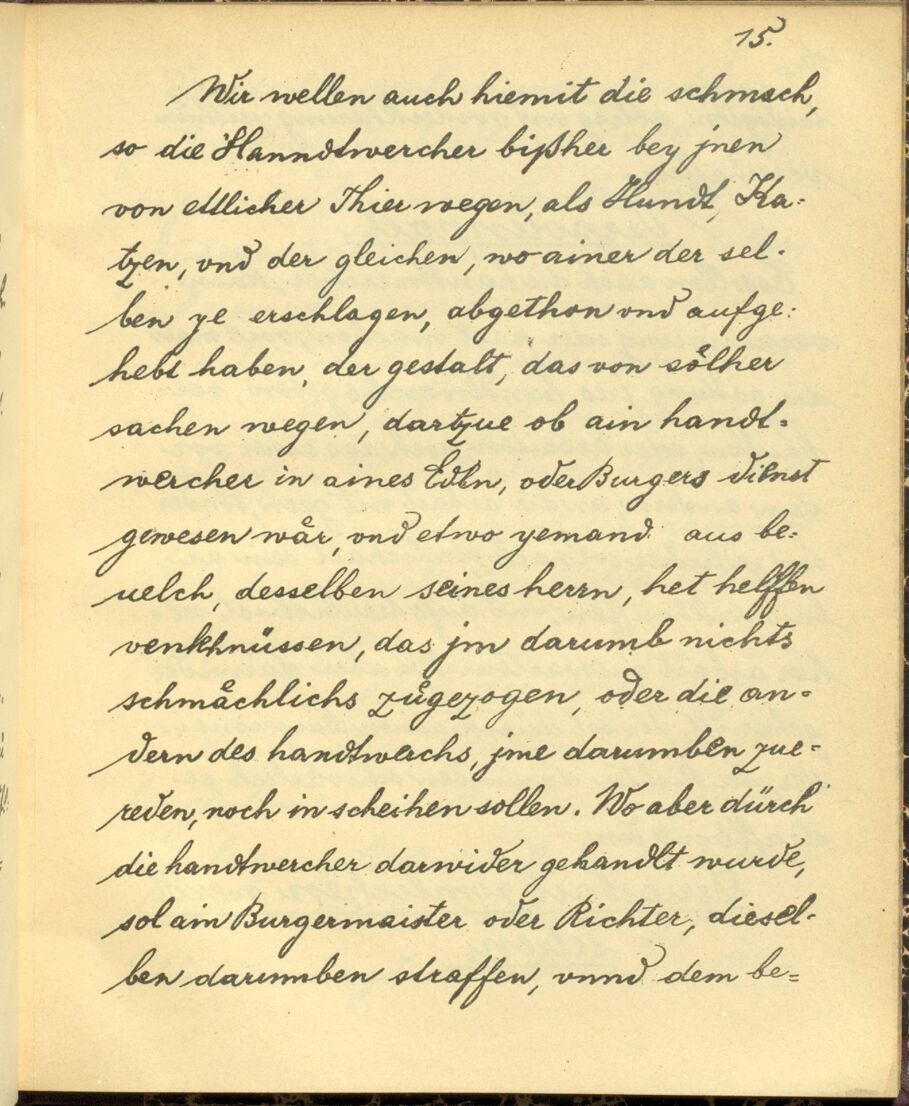 15.
Wir wellen auch hiemit die schmach,
so die Hanndtwercher bißher bey jnen
von ettlicher Thier wegen, als Hundt, Ka-
tzen, vnd der gleichen, wo ainer der sel-
ben ye erschlagen, abgethon vnd aufge:
hebt haben, der gestalt, das von sölher
sachen wegen, dartzue ob ain handt-
wercher in aines Edln, oder Burgers dienst
gewesen wår, vnd etwo yemand aus be-
uelch, desselben seines herrn, het helffen
venkhnüssen, das jm darumb nichts
schmåchlichs zůgezogen, oder die an-
dern des handtwerchs, jme darumben zue-
reden, noch in scheihen sollen. Wo aber dürch
die handtwercher darwider gehandlt wurde,
sol ain Burgermaister oder Richter, diesel-
ben darumben straffen, vnnd dem be=